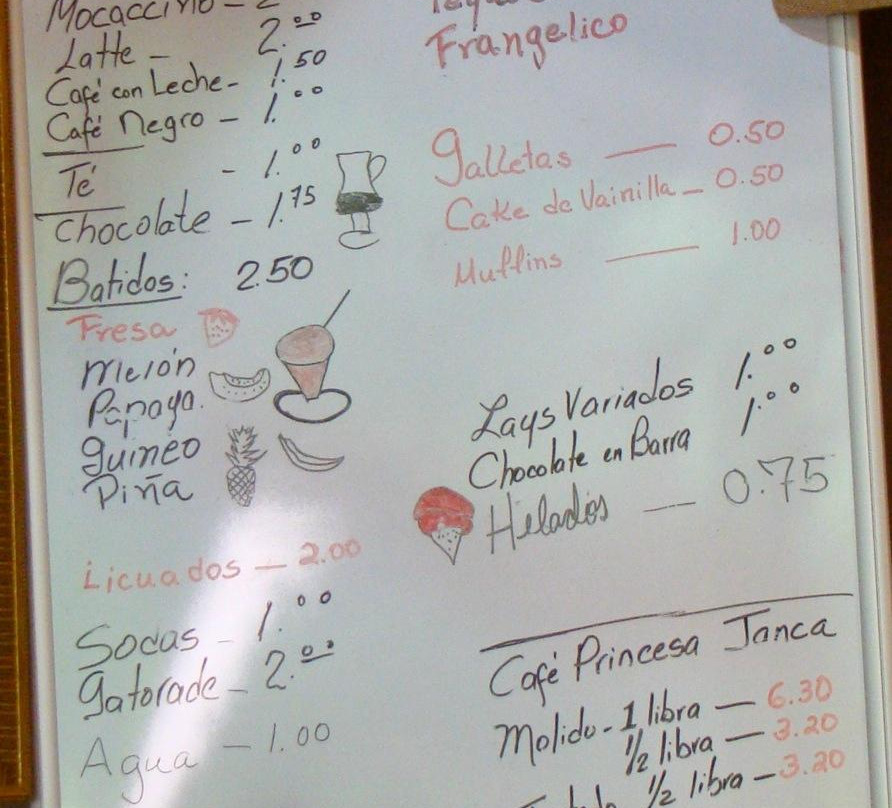 Mocaccino - 2
Latte - 2.00
Café con Leche - 1.50
Café Negro - 1.00
Té - 1.00
Chocolate - 1.75
Batidos: 2.50
Fresa
Melón
Papaya.
Guineo
Piña
Licuados - 2.00
Sodas - 1.00
Gatorade - 2.00
Agua - 1.00
Frangelico
Galletas — 0.50
Cake de Vainilla - 0.50
Muffins — 1.00
Lays Variados 1.00
Chocolate en Barra 1.00
Helados — 0.75
Café Princesa Janca
Molido - 1 libra — 6.30
1/2 libra — 3.20
1/2 libra - 3.20